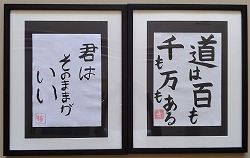 君は
そのままが
いい
道は百も
千も万もある